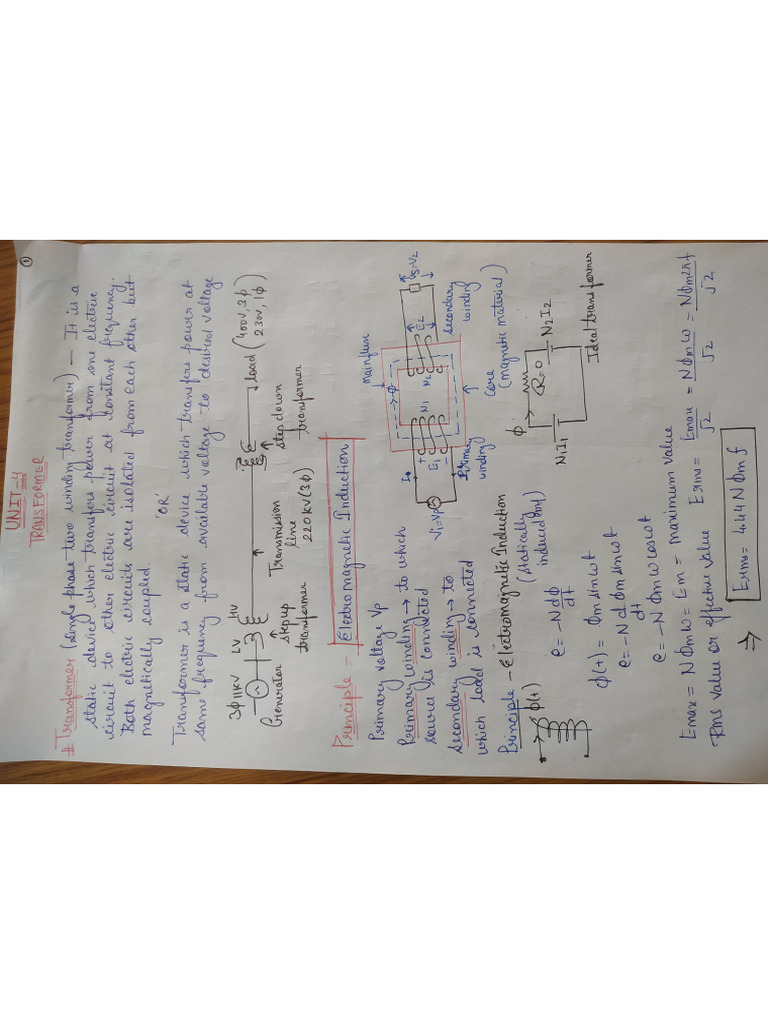 ①
UNIT-4
TRANSFORMER
# Transformer (single phase two winding transformer) – It is a
static device which transfers power from one electric
circuit to other electric circuit at constant frequency.
Both electric circuits are isolated from each other but
magnetically coupled
'OR'
Transformer is a static device which transfers power at
same frequency from available voltage to desired voltage
3ϕ 11KV
LV
HV
Generator
step up
transformer
Transmission
line
220 KV (3ϕ)
step down
transformer
load (400V, 3ϕ
230V, 1ϕ)
Principle – Electromagnetic Induction
Primary voltage Vp
Primary winding → to which
source is connected
Secondary winding → to
which load is connected
main flux
ϕ
I0
V1=Vp
E1
N1
N2
E2
Vs=V2
Primary
winding
Secondary
winding
core
(magnetic material)
Principle – Electromagnetic Induction
(Statically
induced emf)
ϕ(t)
e = -N dϕ/dt
ϕ(t) = ϕm sinωt
e = -N d/dt ϕm sinωt
e = -N ϕm ω cosωt
ϕ
N1I1
R=0
N2I2
Ideal transformer
Emax = N ϕm ω = Em = maximum value
Rms value or effective value
Erms = Emax/√2 = Nϕmω/√2 = Nϕm2πf/√2
⇒ Erms = 4.44 N ϕm f